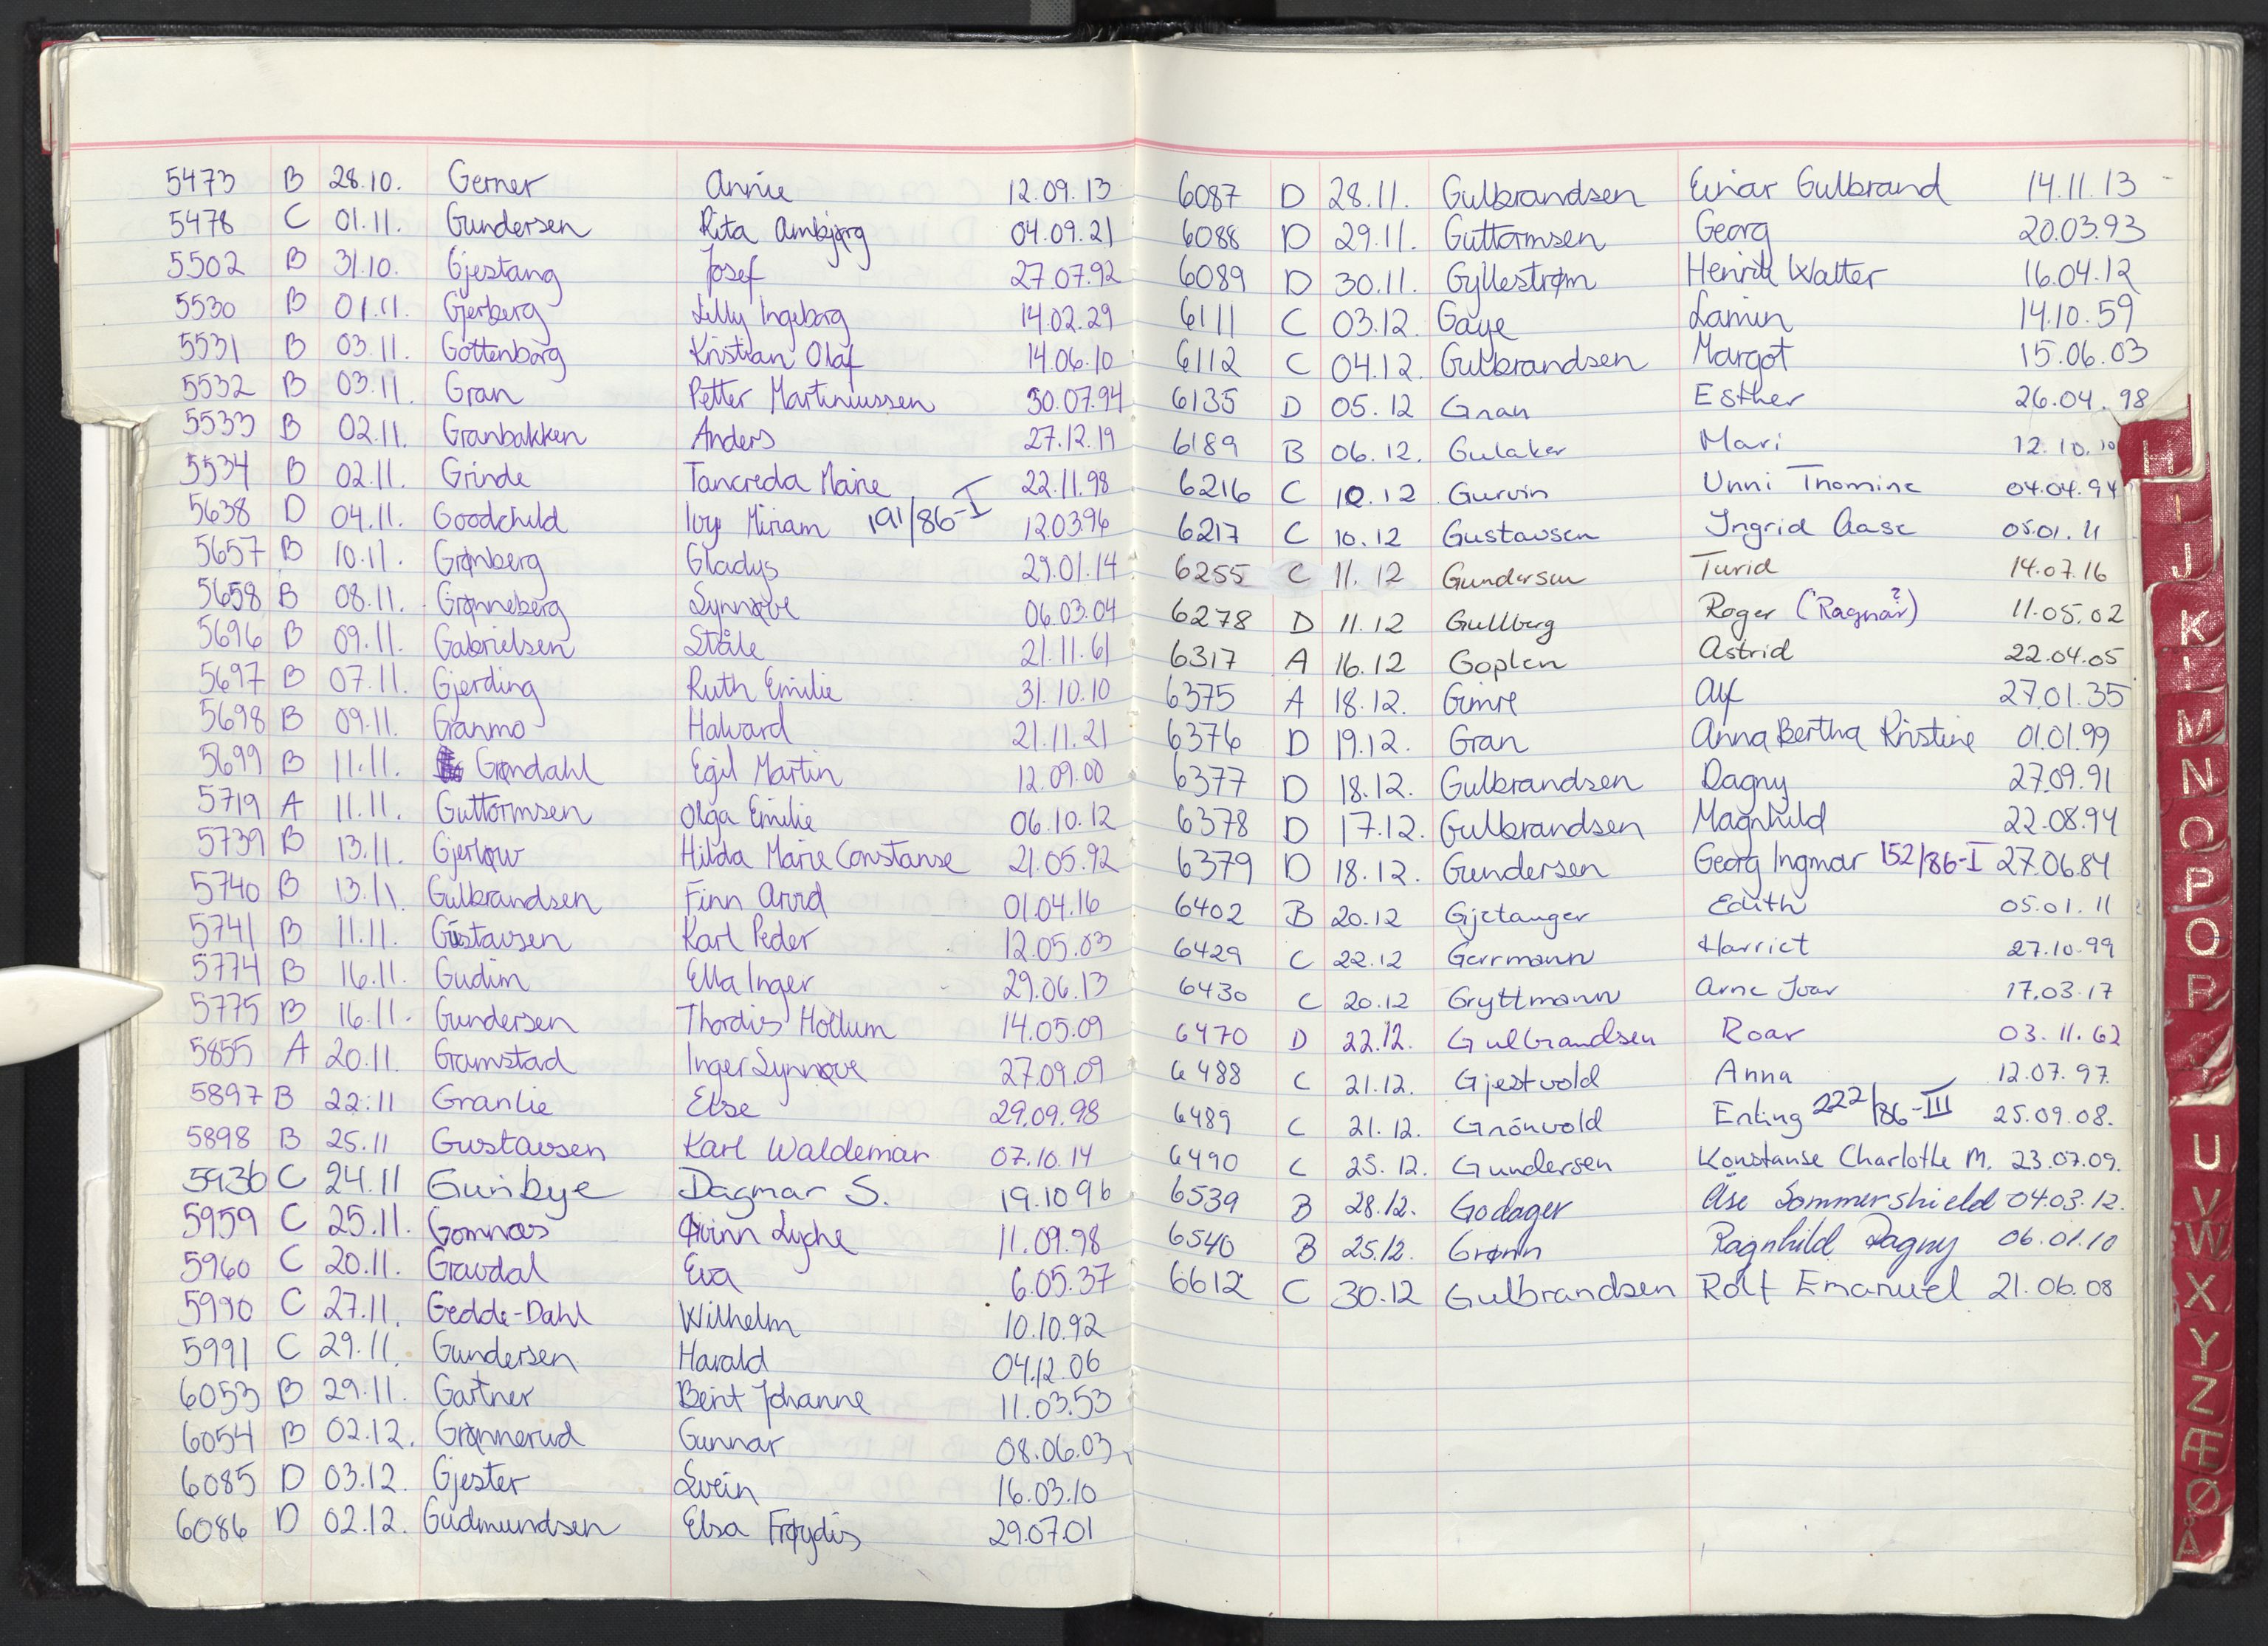 5473 B 28.10. Gerner Annie 12.09.13
5478 C 01.11. Gundersen Rita Ambjørg 04.09.21
5502 B 31.10. Gjestang Josef 27.07.92
5530 B 01.11. Gjerberg Lilly Ingeborg 14.02.29
5531 B 03.11. Gottenborg Kristian Olaf 14.06.10
5532 B 03.11. Gran Petter Martiniussen 30.07.94
5533 B 02.11. Granbakken Anders 27.12.19
5534 B 02.11. Grinde Tancreda Marie 22.11.98
5638 D 04.11. Goodchild Ivy Miriam 191/86-I 12.03.96
5657 B 10.11. Grønberg Gladys 29.01.14
5658 B 08.11. Grønneberg Synnøve 06.03.04
5696 B 09.11. Gabrielsen Ståle 21.11.61
5697 B 07.11. Gjerding Ruth Emilie 31.10.10
5698 B 09.11. Granmo Halvard 21.11.21
5699 B 11.11. Grøndahl Egil Martin 12.09.00
5719 A 11.11. Guttormsen Olga Emilie 06.10.12
5739 B 13.11. Gjerløw Hilda Marie Constanse 21.05.92
5740 B 13.11. Gulbrandsen Finn Arvid 01.04.16
5741 B 11.11. Gustavsen Karl Peder 12.05.03
5774 B 16.11. Gudim Ella Inger 29.06.13
5775 B 16.11. Gundersen Thordis Hollum 14.05.09
5855 A 20.11. Gramstad Inger Synnøve 27.09.09
5897 B 22.11 Granlie Else 29.09.98
5898 B 25.11 Gustavsen Karl Waldemar 07.10.14
5936 C 24.11 Gunbye Dagmar S. 19.10 96
5959 C 25.11. Gomnæs Lyche 11.09.98
5960 C 20.11. Gravdal Eva 6.05.37
5990 C 27.11. Gedde-Dahl Wilhelm 10.10.92
5991 C 29.11. Gundersen Harald 04.12.06
6053 B 29.11. Gartner Berit Johanne 11.03.53
6054 B 02.12. Grønnerud Gunnar 08.06.03
6085 D 03.12. Gjester Svein 16.03.10
6086 D 02.12. Gudmundsen Elsa Frøydis 29.07.01
6087 D 28.11. Gulbrandsen Einar Gulbrand 14.11.13
6088 D 29.11. Guttormsen Georg 20.03.93
6089 D 30.11. Gyllestrøm Henrik Walter 16.04.12
6111 C 03.12. Gaye Lamin 14.10.59
6112 C 04.12. Gulbrandsen Margot 15.06.03
6135 D 05.12 Gran Esther 26.04.98
6189 B 06.12. Gulaker Mari 12.10.10
6216 C 10.12 Gurvin Unni Thomine 04.04.94
6217 C 10.12 Gustavsen Ingrid Aase 05.01.11
6255 C 11.12 Gundersen Turid 14.07.16
6278 D 11.12 Gullberg Roger (Ragnar?) 11.05.02
6317 A 16.12 Goplen Astrid 22.04.05
6375 A 18.12. Gimre Alf 27.01.35
6376 D 19.12. Gran Anna Bertha Kristine 01.01.99
6377 D 18.12. Gulbrandsen Dagny 27.09.91
6378 D 17.12. Gulbrandsen Magnhild 22.08.94
6379 D 18.12. Gundersen Georg Ingmar 152/86-I 27.06.84
6402 B 20.12 Gjetanger Edith 05.01.11
6429 C 22.12 Gerrmann Harriet 27.10.99
6430 C 20.12 Gryttmann Arne Ivar 17.03.17
6470 D 22.12. Gulbrandsen Roar 03.11.62
6488 C 21.12. Gjestvold Anna 12.07.97.
6489 C 21.12. Grönvold Erling 222/86-III 25.09.08.
6490 C 25.12. Gundersen Konstanse Charlotte M. 23.07.09.
6539 B 28.12. Godager Åse Sommershield 04.03.12.
6540 B 25.12. Grønn Ragnhild Dagny 06.01.10
6612 C 30.12 Gulbrandsen Rolf Emanuel 21.06.08
H
I
J
K
L
M
N
O
P
Q
R
U
V
W
X
Y
Z
Æ
Ø
Å